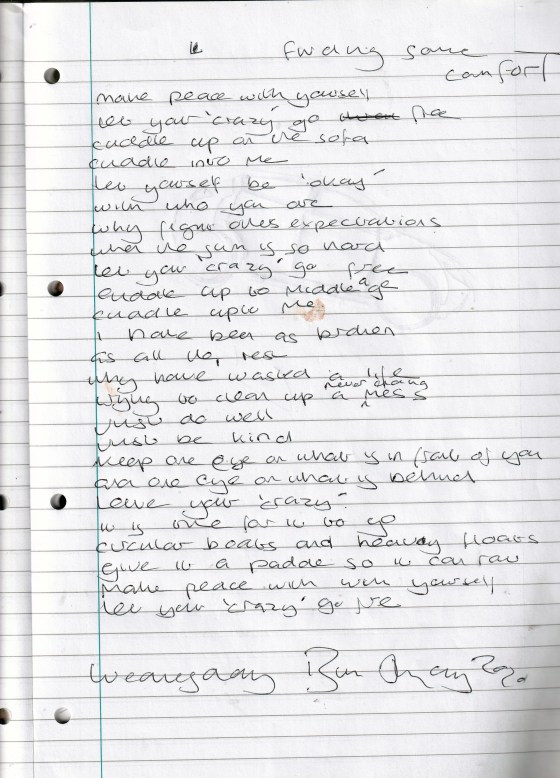 Finding some
comfort
make peace with yourself
let your 'crazy' go free
cuddle up on the sofa
cuddle into me
let yourself be 'okay'
with who you are
why fight ones expectations
when the sum is so hard
let your 'crazy' go free
cuddle up to middle age
cuddle up to me
I have been as broken
as all the rest
why have wasted a life
trying to clean up a never ending mess
just do well
just be kind
keep one eye on what is in front of you
and one eye on what is behind
Leave your 'crazy'
it is time for it to go
circular boats and heavy floats
give it a paddle so it can row
Make peace with with yourself
let your 'crazy' go free
Wednesday